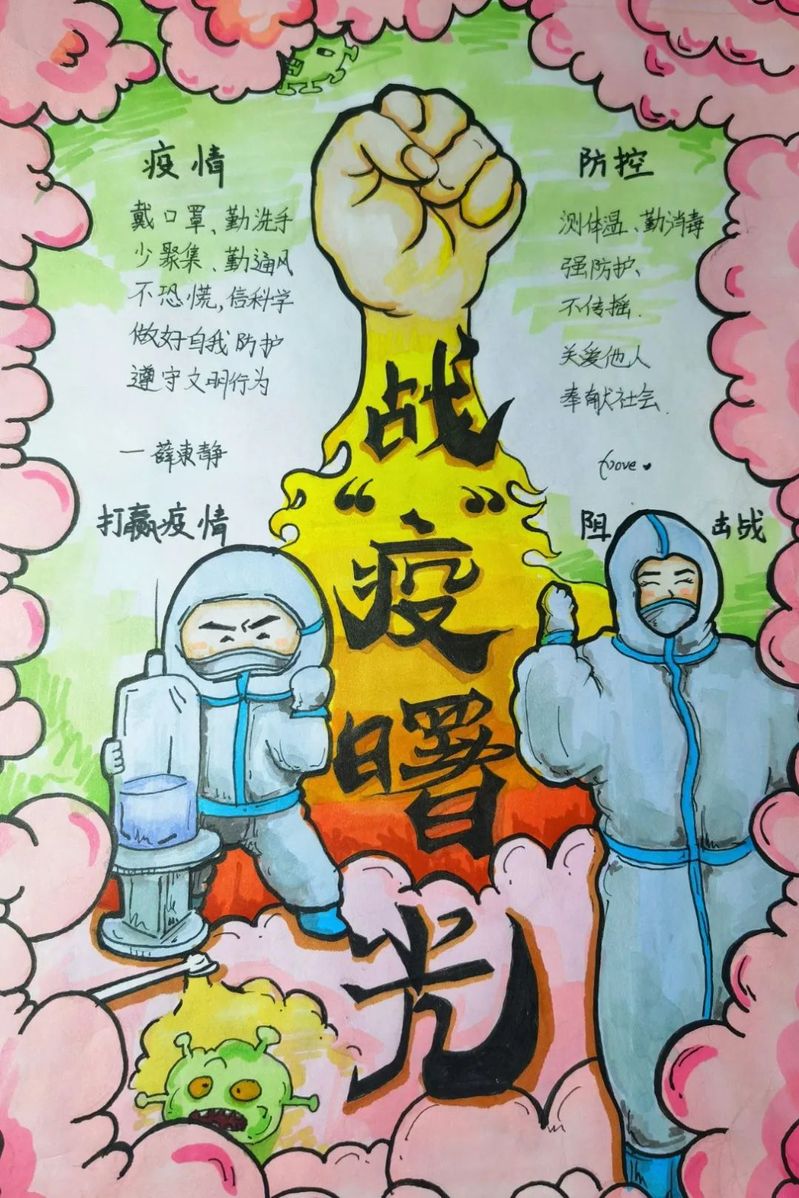 疫情
戴口罩、勤洗手
少聚集、勤通风
不恐慌,信科学
做好自我防护
遵守文明行为
一薛东静
打赢疫情
战
“疫”
曙
光
防控
测体温、勤消毒
强防护、
不传摇.
关爱他人
奉献社会.
阻 击战